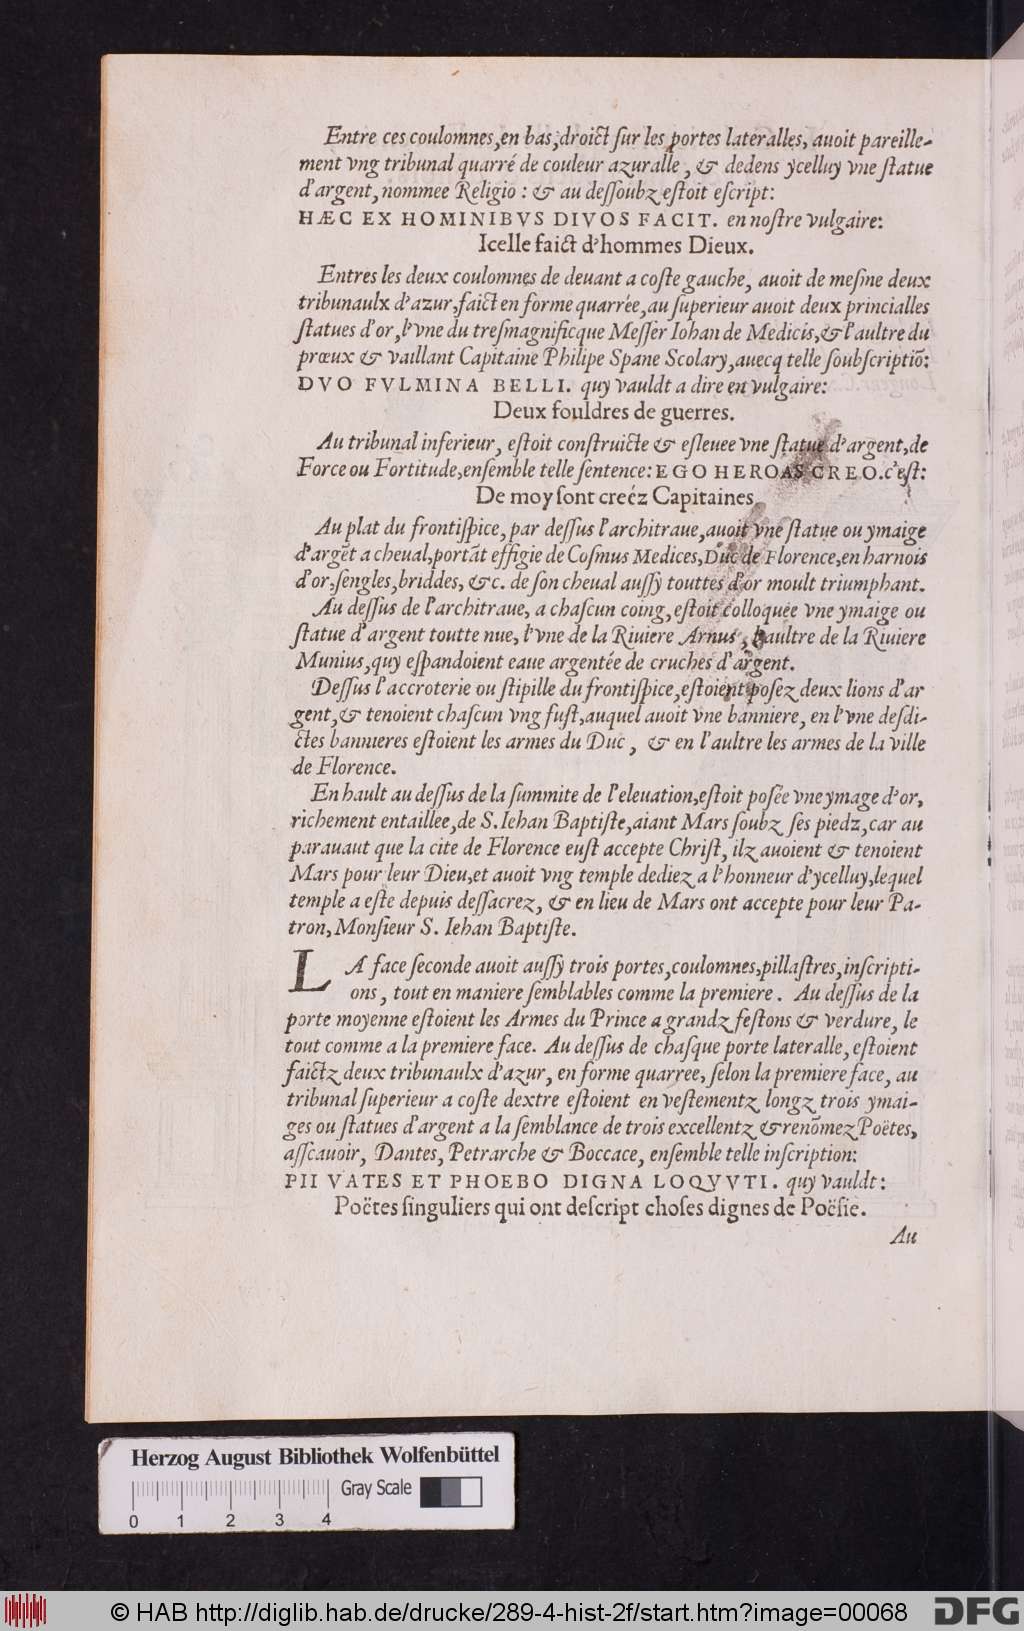 Entre ces coulomnes, en bas, droict ſur les portes lateralles, auoit pareille-
ment vng tribunal quarré de couleur azuralle, & dedens ycelluy vne ſtatue
d'argent, nommee Religio: & au deſſoubz eſtoit eſcript:
HÆC EX HOMINIBVS DIVOS FACIT. en noſtre vulgaire:
Icelle faict d'hommes Dieux.
Entres les deux coulomnes de deuant a coſte gauche, auoit de meſme deux
tribunaulx d'azur, faict en forme quarrée, au ſuperieur auoit deux princialles
ſtatues d'or, l'vne du treſmagnificque Meſſer Iohan de Medicis, & l'aultre du
prœux & vaillant Capitaine Philipe Spane Scolary, auecq telle ſoubſcriptiō:
DVO FVLMINA BELLI. quy vauldt a dire en vulgaire:
Deux fouldres de guerres.
Au tribunal inferieur, eſtoit conſtruicte & eſleuee vne ſtatue d'argent, de
Force ou Fortitude, enſemble telle ſentence: EGO HEROAS CREO. c'eſt:
De moy ſont creéz Capitaines.
Au plat du frontiſpice, par deſſus l'architraue, auoit vne ſtatue ou ymaige
d'argēt a cheual, portāt effigie de Coſmus Medices, Duc de Florence, en harnois
d'or, ſengles, briddes, &c. de ſon cheual auſſy touttes d'or moult triumphant.
Au deſſus de l'architraue, a chaſcun coing, eſtoit colloquée vne ymaige ou
ſtatue d'argent toutte nue, l'vne de la Riuiere Arnus, l'aultre de la Riuiere
Munius, quy eſpandoient eaue argentée de cruches d'argent.
Deſſus l'accroterie ou ſtipille du frontiſpice, eſtoient poſez deux lions d'ar
gent, & tenoient chaſcun vng fuſt, auquel auoit vne banniere, en l'vne deſdi-
ctes bannieres eſtoient les armes du Duc, & en l'aultre les armes de la ville
de Florence.
En hault au deſſus de la ſummite de l'eleuation, eſtoit poſée vne ymage d'or,
richement entaillee, de S. Iehan Baptiſte, aiant Mars ſoubz ſes piedz, car au
parauaut que la cite de Florence euſt accepte Chriſt, ilz auoient & tenoient
Mars pour leur Dieu, et auoit vng temple dediez a l'honneur d'ycelluy, lequel
temple a eſte depuis deſſacrez, & en lieu de Mars ont accepte pour leur Pa-
tron, Monſieur S. Iehan Baptiſte.
LA face ſeconde auoit auſſy trois portes, coulomnes, pillaſtres, inſcripti-
ons, tout en maniere ſemblables comme la premiere. Au deſſus de la
porte moyenne eſtoient les Armes du Prince a grandz feſtons & verdure, le
tout comme a la premiere face. Au deſſus de chaſque porte lateralle, eſtoient
faictz deux tribunaulx d'azur, en forme quarree, ſelon la premiere face, au
tribunal ſuperieur a coſte dextre eſtoient en veſtementz longz trois ymai-
ges ou ſtatues d'argent a la ſemblance de trois excellentz & renōmez Poëtes,
aſſcauoir, Dantes, Petrarche & Boccace, enſemble telle inſcription:
PII VATES ET PHOEBO DIGNA LOQVVTI. quy vauldt:
Poëtes ſinguliers qui ont deſcript choſes dignes de Poëſie.
Au
Herzog August Bibliothek Wolfenbüttel
Gray Scale
0 1 2 3 4
© HAB http://diglib.hab.de/drucke/289-4-hist-2f/start.htm?image=00068
DFG